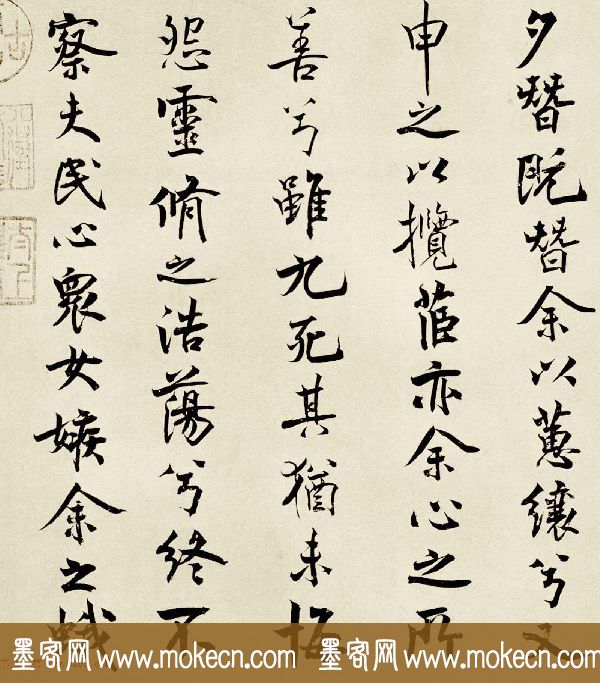 夕替既替余以蕙纕兮又
申之以攬茝亦余心之所
善兮雖九死其猶未悔
怨靈脩之浩蕩兮終不
察夫民心衆女嫉余之蛾
墨客网 www.mokecn.com 墨客网 www.mokecn.com